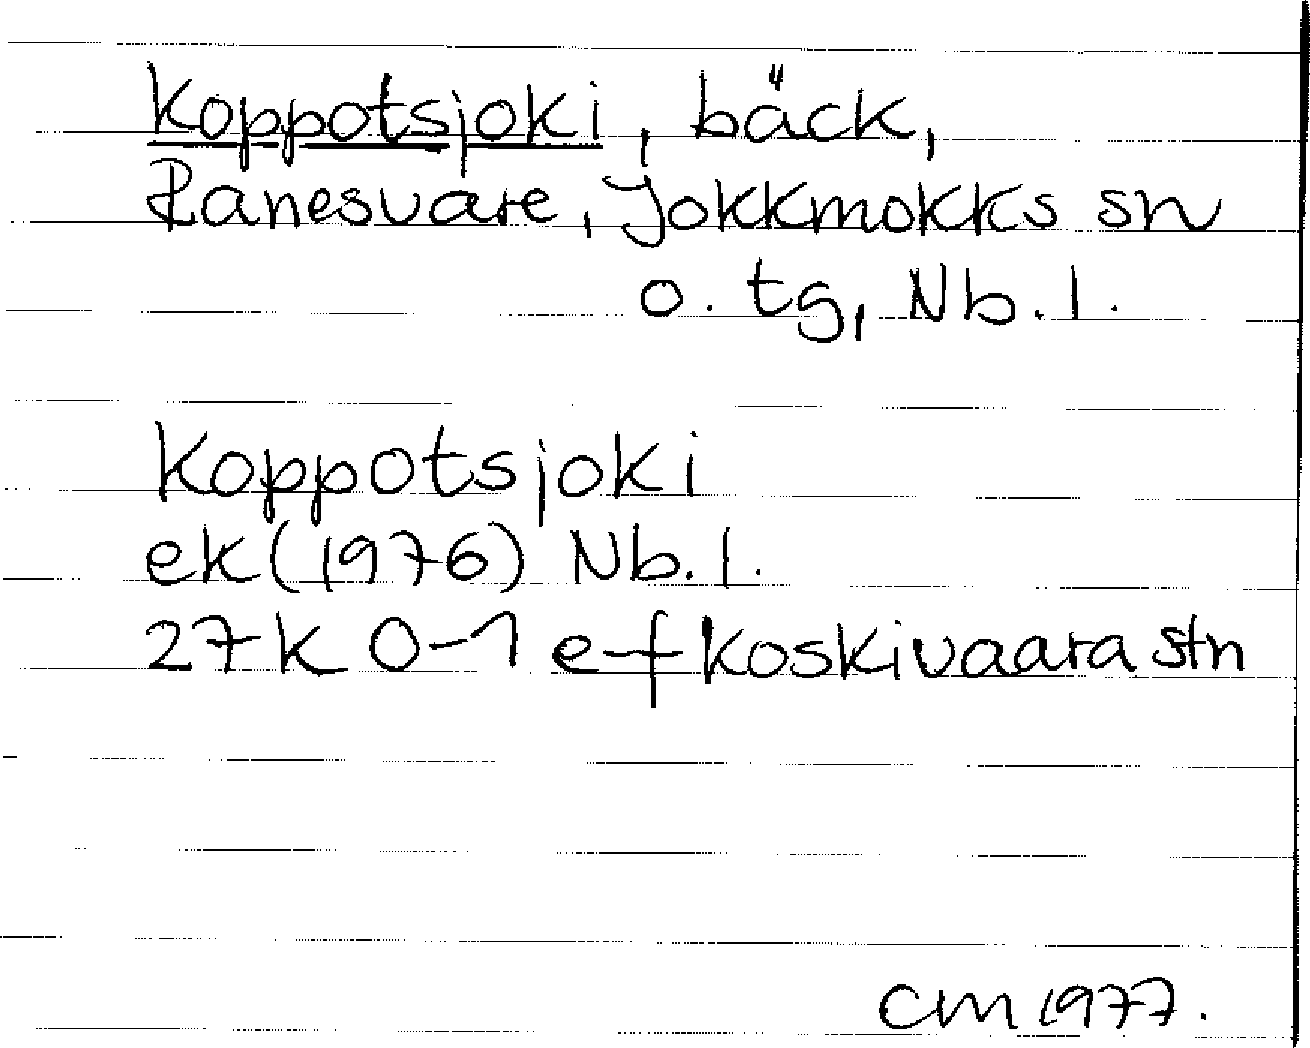 Koppotsjoki, bäck,
Ranesvare, Jokkmokks sn
o. tg, Nb. l.
Koppotsjoki
ek (1976) Nb. l.
27K 0-1 e-f Koskivaara stn
CM 1977.